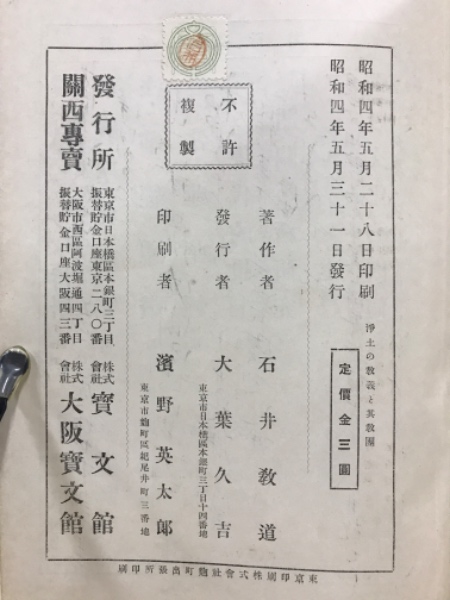 昭和四年五月二十八日印刷
昭和四年五月三十一日發行
淨土の敎義と其敎團
定價金三圓
不許
複製
著作者 石井敎道
發行者 大葉久吉
東京市日本橋區本銀町三丁目十四番地
印刷者 濱野英太郎
東京市麴町區紀尾井町三番地
發行所 東京市日本橋區本銀町三丁目 振替貯金口座東京二八〇番 株式會社 寶文館
關西專賣 大阪市西區阿波堀通四丁目 振替貯金口座大阪四三番 株式會社 大阪寶文館
東京印刷株式會社麴町出張所印刷